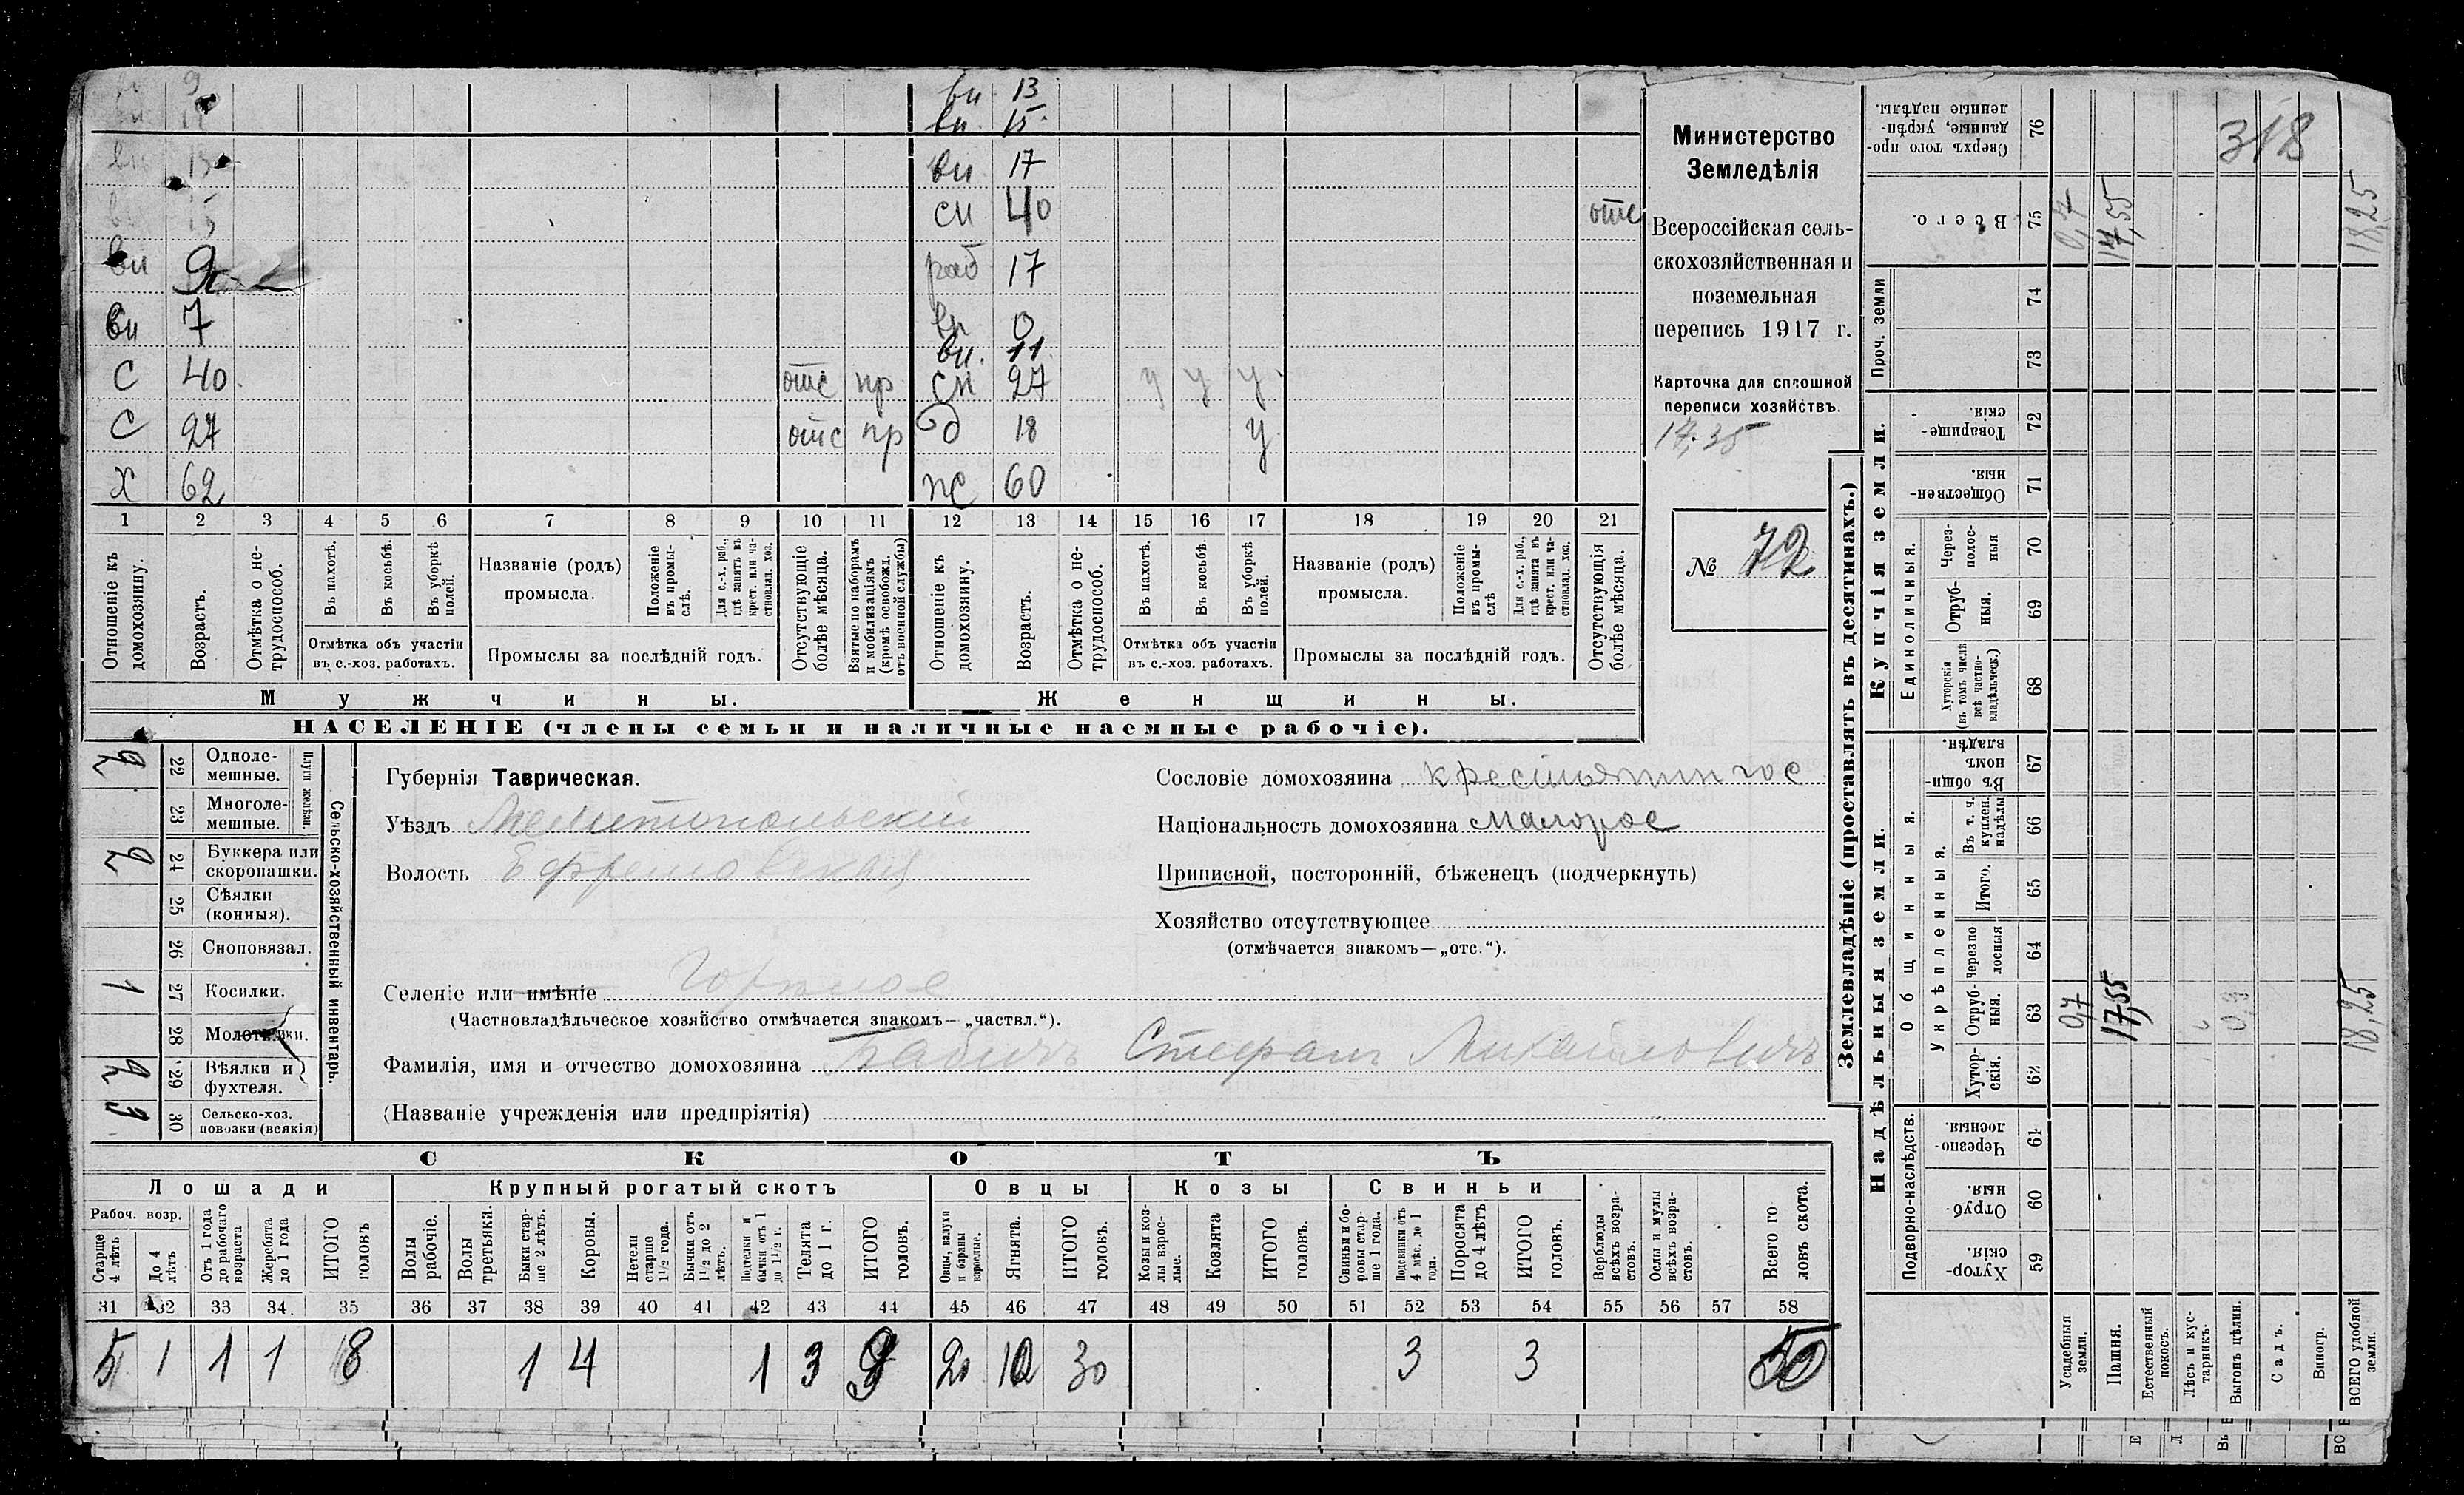 9
вн 13
вн 15
вн 13 вн 17
вн 15 сн 40 отс
вн 9 раб 17
вн 7 вн 0
вн. 11
С 40 отс пр сн 27 у у у
С 27 отс пр д 18 у
Х 62 60
1 2 3 4 5 6 7 8 9 10 11 12 13 14 15 16 17 18 19 20 21
Отношеніе къ домохозяину.
Возрастъ.
Отмѣтка о нетрудоспособ.
Въ пахотѣ.
Въ косьбѣ.
Въ уборкѣ полей.
Отмѣтка объ участіи въ с.-хоз. работахъ.
Названіе (родъ) промысла.
Положеніе въ промыслѣ.
Для с.-х. раб., гдѣ занятъ въ крест. или частновлад. хоз.
Промыслы за послѣдній годъ.
Отсутствующіе болѣе мѣсяца.
Взятые по наборамъ и мобилизаціямъ (кромѣ освобожд. отъ военной службы)
Отношеніе къ домохозяину.
Возрастъ.
Отмѣтка о нетрудоспособ.
Въ пахотѣ.
Въ косьбѣ.
Въ уборкѣ полей.
Отмѣтка объ участіи въ с.-хоз. работахъ.
Названіе (родъ) промысла.
Положеніе въ промыслѣ
Для с.-х. раб., гдѣ занята въ крест. или частновлад. хоз.
Промыслы за послѣдній годъ.
Отсутствующія болѣе мѣсяца.
Мужчины. Женщины.
НАСЕЛЕНІЕ (члены семьи и наличные наемные рабочіе).
Министерство
Земледѣлія
Всероссійская сель-
скохозяйственная и
поземельная
перепись 1917 г.
Карточка для сплошной
переписи хозяйствъ.
17,35
№ 72
Сельско-хозяйственный инвентарь.
Плуги желѣзн.
22 Однолемешные. 2
23 Многолемешные.
24 Буккера или скоропашки. 2
25 Сѣялки (конныя).
26 Сноповязал.
27 Косилки. 1
28 Молотилки.
29 Вѣялки и фухтеля. 2
30 Сельско-хоз. повозки (всякія)
Губернія Таврическая.
Уѣздъ Мелитопольскій
Волость Ефремовская
Селеніе или имѣніе Горжное
(Частновладѣльческое хозяйство отмѣчается знакомъ— „частвл.“).
Фамилія, имя и отчество домохозяина Бабичъ Стефанъ Михайловичъ
(Названіе учрежденія или предпріятія)
Сословіе домохозяина
Національность домохозяина Малорос
Приписной, посторонній, бѣженецъ (подчеркнуть)
Хозяйство отсутствующее
(отмѣчается знакомъ—„отс.“).
СКОТЪ
Лошади Крупный рогатый скотъ Овцы Козы Свиньи
Рабоч. возр.
Старше 4 лѣтъ
До 4 лѣтъ
Отъ 1 года до рабочаго возраста
Жеребята до 1 года
ИТОГО головъ
Волы рабочіе.
Волы третьяки.
Быки старше 2 лѣтъ.
Коровы.
Нетели старше 1 1/2 года.
Бычки отъ 1 1/2 до 2 лѣтъ.
Подтелки и бычки отъ 1 до 1 1/2 г.
Телята до 1 г.
ИТОГО головъ.
Овцы, валухи и бараны взрослые.
Ягнята.
ИТОГО головъ.
Козы и козлы взрослые.
Козлята
ИТОГО головъ.
Свиньи и боровы старше 1 года.
Подсвинки отъ 4 мѣс. до 1 года.
Поросята до 4 лѣтъ
ИТОГО головъ.
Верблюды всѣхъ возрастовъ.
Ослы и мулы всѣхъ возрастовъ.
Всего головъ скота.
31 32 33 34 35 36 37 38 39 40 41 42 43 44 45 46 47 48 49 50 51 52 53 54 55 56 57 58
5 1 1 1 8 1 4 1 3 9 20 10 30 3 3 50
Землевладѣніе (проставлять въ десятинахъ.)
Купчія земли.
Надѣльныя земли.
Сверхъ того проданные, укрѣпленные надѣлы. 76
Всего. 75
Проч. земли 74 73
Товарищескія. 72
Общественныя. 71
Единоличныя.
Черезполосныя 70
Отрубныя. 69
Хуторскія (въ томъ числѣ всѣ частновладѣльческ.) 68
Общинныя.
Въ общинномъ владѣн. 67
Укрѣпленныя.
Въ т. ч. куплен. надѣлы 66
Итого. 65
Черезполосныя 64
Отрубныя. 63
Хуторскія. 62
Подворно-наслѣдств.
Черезполосныя. 61
Отрубныя. 60
Хуторскія. 59
Усадебныя земли. 0,7 0,7
Пашня. 17,55 17,55
Естественный покосъ.
Лѣсъ и кустарникъ.
Выгонъ цѣлин.
Садъ.
Виногр.
ВСЕГО удобной земли. 18,25 18,25
318